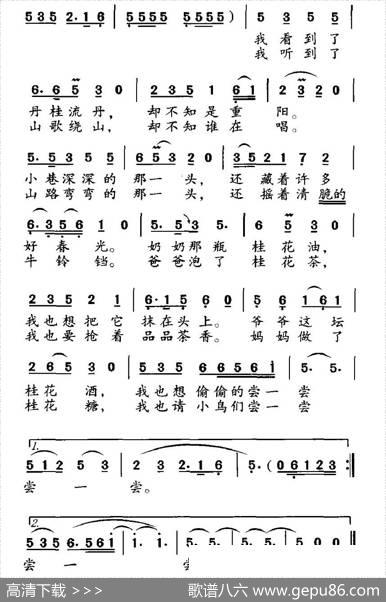 5 3 5 2 · 1 6 | 5 5 5 5 5 5 5 5 ) | 5 3 5 5 |
我 看 到 了
我 听 到 了
6 · 6 5 3 0 | 2 3 5 1 6 1 | 2 3 2 0 |
丹 桂 流 丹， 却 不 知 是 重 阳。
山 歌 绕 山， 却 不 知 谁 在 唱。
5 · 5 3 5 5 | 6 5 3 2 0 | 3 5 2 1 7 2 |
小 巷 深 深 的 那 一 头， 还 藏 着 许 多
山 路 弯 弯 的 那 一 头， 还 摇 着 清 脆 的
6 · 3 5 6 1 0 | 5 · 5 3 5 · | 6 5 3 0 |
好 春 光。 奶 奶 那 瓶 桂 花 油，
牛 铃 铛。 爸 爸 泡 了 桂 花 茶，
2 3 5 2 1 | 6 · 1 5 6 0 | 5 6 1 6 1 |
我 也 想 把 它 抹 在 头 上。 爷 爷 这 坛
我 也 要 抢 着 品 品 茶 香。 妈 妈 做 了
2 6 5 3 0 | 5 3 5 6 6 5 6 1 | 5 · 5 · |
桂 花 酒， 我 也 想 偷 偷 的 尝 一 尝
桂 花 糖， 我 也 请 小 鸟 们 尝 一 尝
1.
5 1 2 5 3 | 2 3 2 · 1 6 | 5 · ( 0 6 1 2 3 :‖
尝 一 尝。
2.
5 3 5 6 · 5 6 1 | 1 · 1 · | 5 · 5 · | 5 · 5 · | 5 0 0 ‖
尝 一
高清下载 >>>
歌谱八六 www.gepu86.com